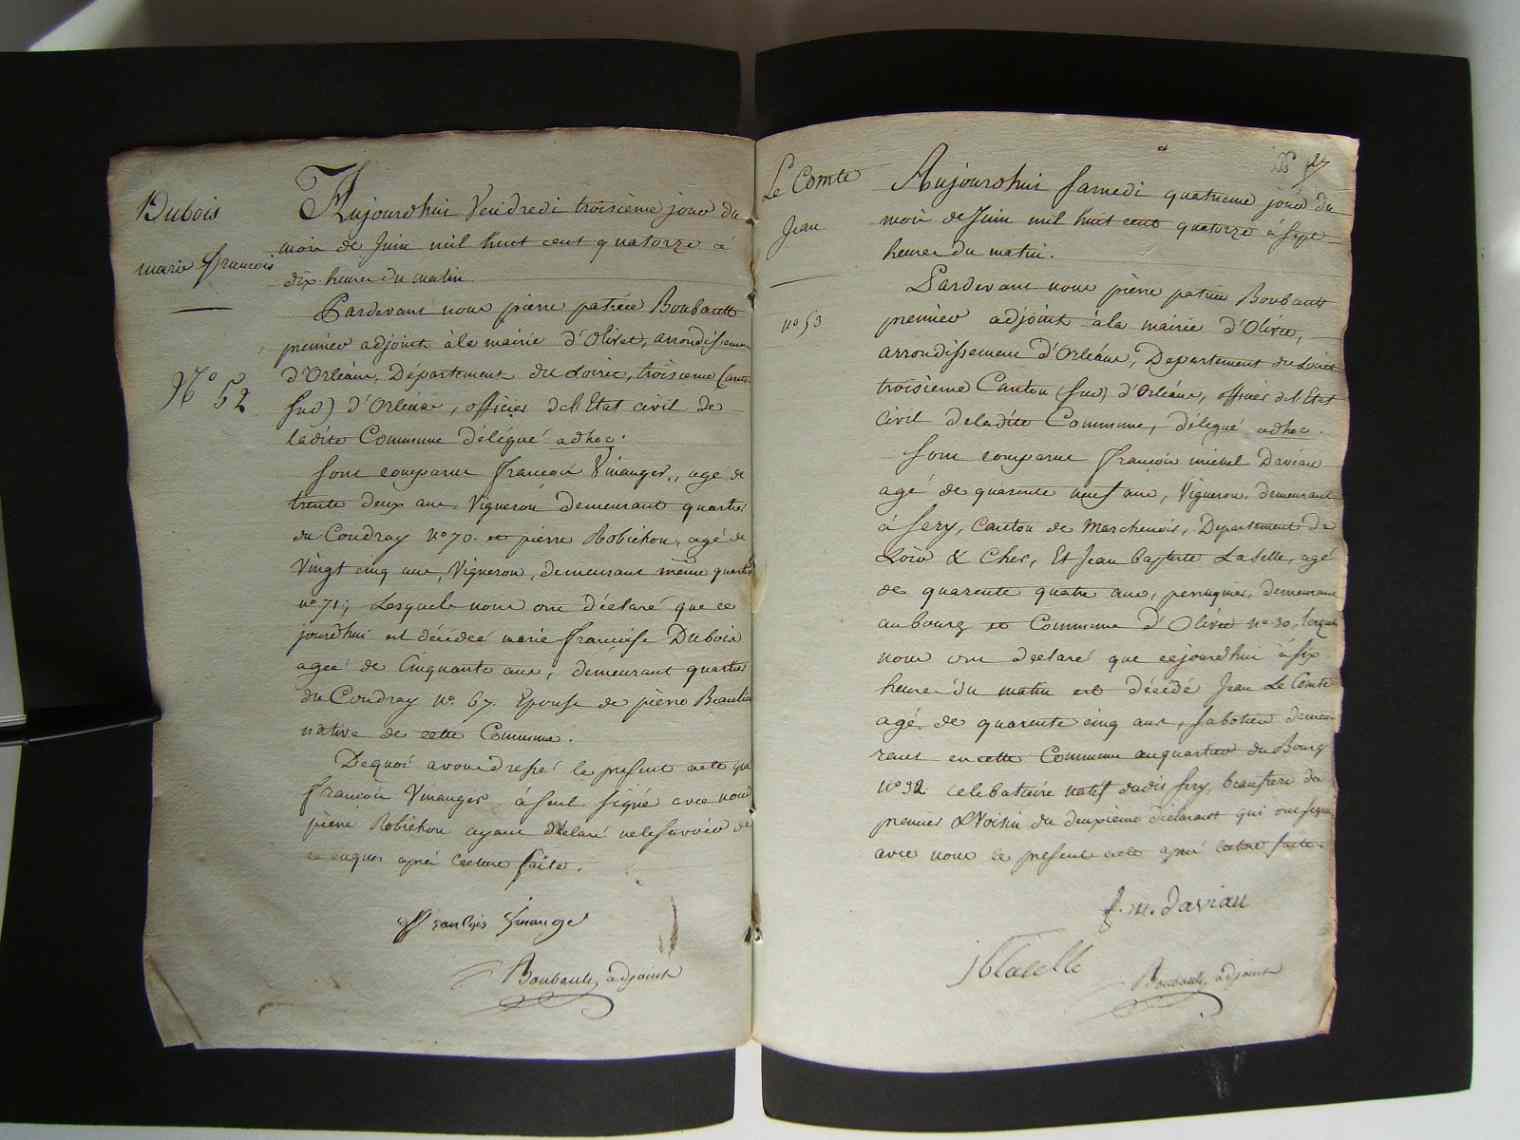 Dubois
marie françoise
N° 52
Aujourdhui Vendredi troisieme jour du
mois de Juin mil huit cent quatorze à
dix heures du matin
Pardevant nous pierre patrice Boubault
premier adjoint à la mairie d'Olivet, arrondissement
d'Orléans, Departement du Loiret, troisieme Canton
Sud) d'Orléans, officier de l'Etat civil de
ladite Commune délégué adhoc.
Sont comparus françois Vinauger, age de
trente deux ans, Vigneron demeurant quartier
du Coudray N° 70. et pierre Robichon, agé de
Vingt cinq ans, Vigneron, demeurant même quartier
n° 71; Lesquels nous ont déclaré que ce
jourdhui est décédée marie françoise Dubois
agee de Cinquante ans, demeurant quartier
du Coudray n° 67. Epouse de pierre
native de cette Commune.
Dequoi avons dressé le present acte que
françois Vinauger à seul signé avec nous
pierre Robichon ayant déclaré ne le savoir de
ce enquis après lecture faite.
Boubault, adjoint
Le Comte
Jean
n° 53
27
Aujourdhui Samedi quatrieme jour du
mois de Juin mil huit cent quatorze à sept
heures du matin.
Pardevant nous pierre patrice Boubault
premier adjoint à la mairie d'Olivet,
arrondissement d'Orléans, Departement du Loiret
troisieme Canton (Sud) d'Orléans, officier de l'Etat
Civil de ladite Commune, délégué adhoc.
Sont comparus françois michel Daviau
agé de quarente neuf ans, Vigneron, demeurant
à Sery, Canton de Marchenoir, Departement de
Loir & Cher, Et Jean baptiste Laselle, agé
de quarente quatre ans, perruquier, demeurant
au bourg et Commune d'Olivet n° 30, lesquels
nous ont declaré que cejourdhui à six
heures du matin est décédé Jean Le Comte
agé de quarente cinq ans, Sabotier demeu
rant en cette Commune au quartier du Bourg
N° 32 celebataire natif dudit Sery, beaufrere du
premier & Voisin du deuxieme déclarant qui ont signé
avec nous le present acte après lecture faite.
f. m. daviau
jblaselle
Boubault, adjoint